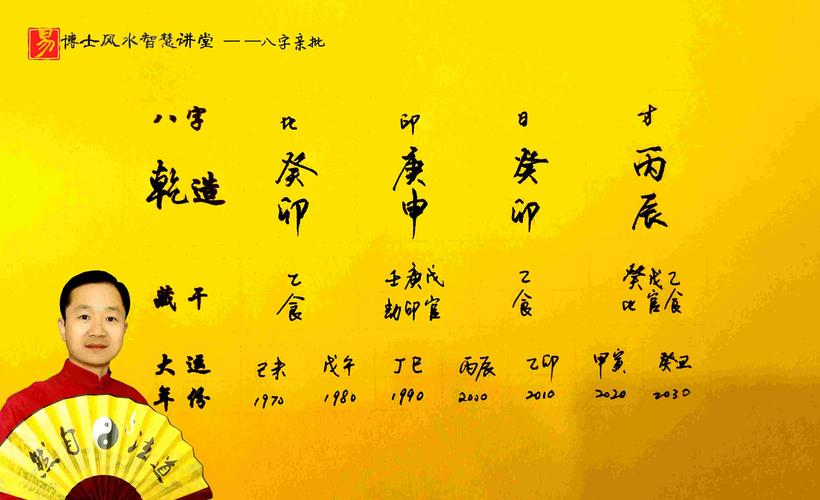 易 博士风水智慧讲堂 ——八字亲批
八字 比 印 日 才
乾造 癸 庚 癸 丙
卯 申 卯 辰
藏干 乙 壬庚戊 乙 癸戊乙
食 劫印官 食 比官食
大运 己未 戊午 丁巳 丙辰 乙卯 甲寅 癸丑
年份 1970 1980 1990 2000 2010 2020 2030
然自 法道